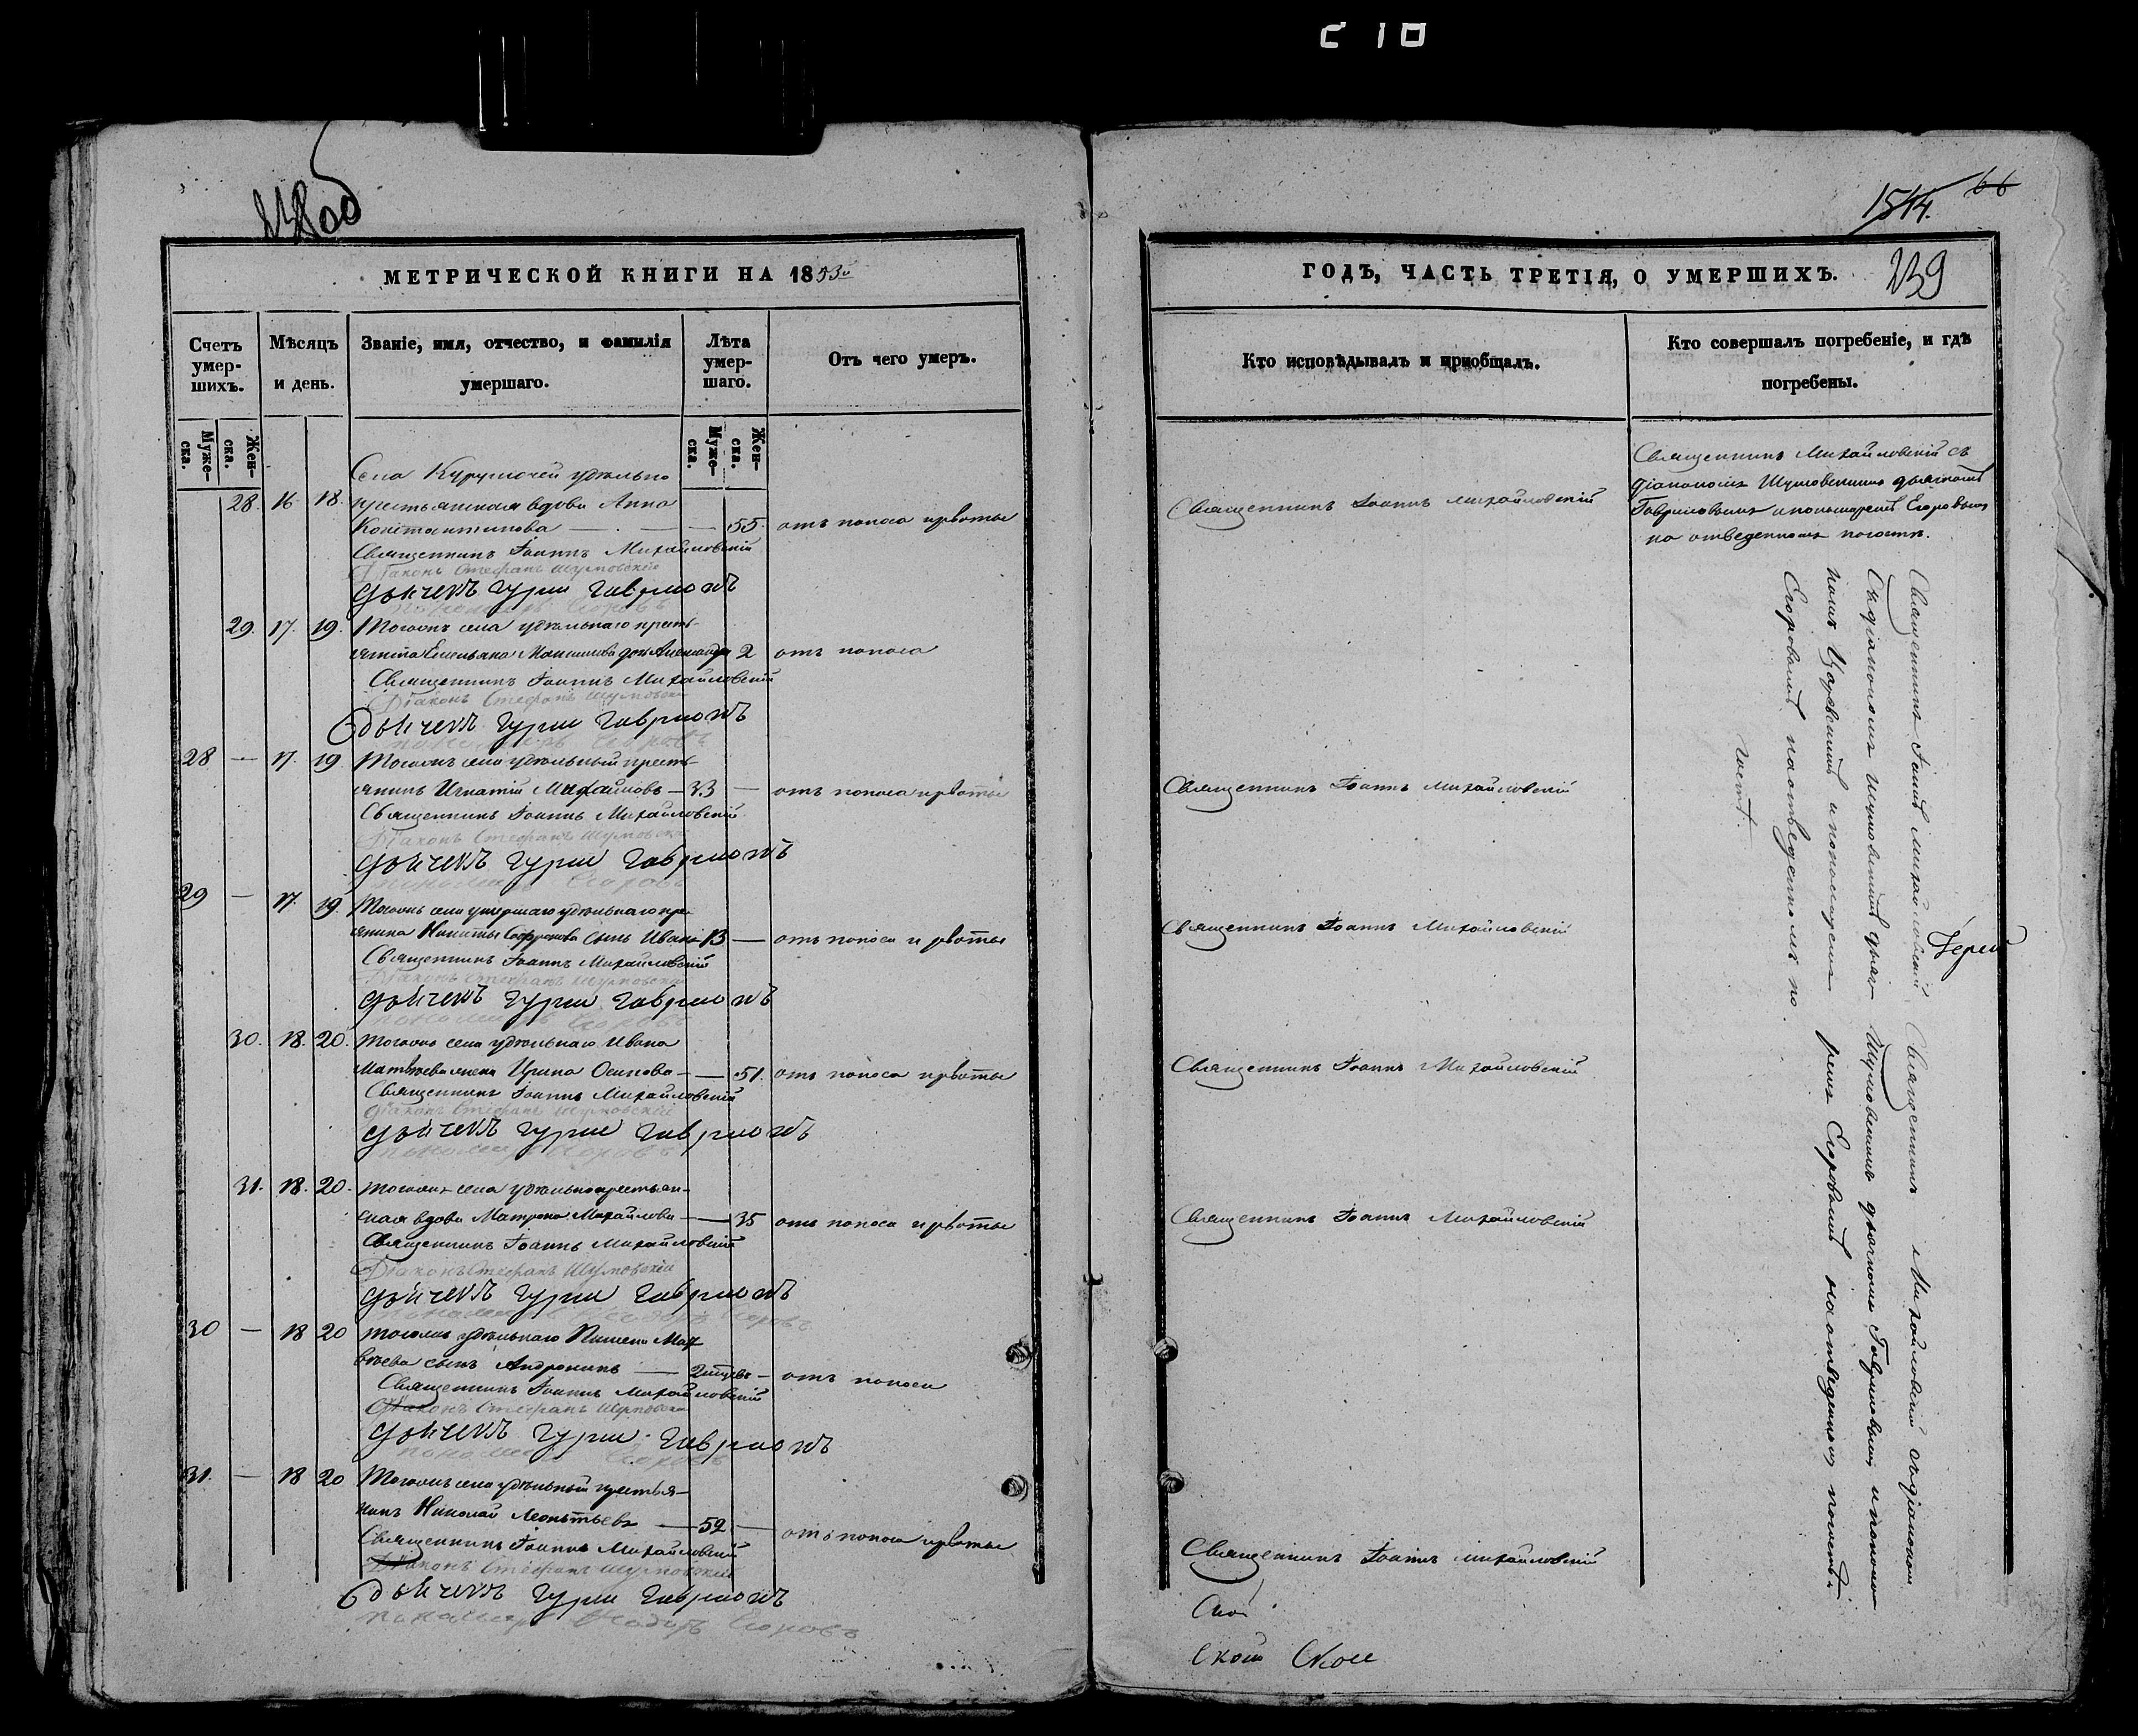 210
238об
МЕТРИЧЕСКОЙ КНИГИ НА 1853й
Счетъ умер-шихъ.
Мѣсяцъ и день.
Званіе, имя, отчество, и фамилія умершаго.
Лѣта умер-шаго.
Отъ чего умеръ.
Муже-ска.
Жен-ска.
Муже-ска.
Жен-ска.
Села Курумочей удѣльно
28. 16. 18. крестьянская вдова Анна
Константинова — — 55. отъ поноса и рвоты
Священникъ Іоаннъ Михайловскій
Діаконъ Стефанъ Шумовскій
Дьячекъ Гурій Гавриловъ
Пономарь Егоровъ
29. 17. 19. Тогожъ села удѣльнаго кресть-
янина Емельяна дочь Александра 2 отъ поноса
Священникъ Іоаннъ Михайловскій
Діаконъ Стефанъ Шумовскій
Дьячекъ Гурій Гавриловъ
Пономарь Егоровъ
28 — 17. 19. Тогожъ села удѣльный кресть-
янинъ Игнатій Михайловъ — 33 — отъ поноса и рвоты
Священникъ Іоаннъ Михайловскій
Діаконъ Стефанъ Шумовскій
Дьячекъ Гурій Гавриловъ
Пономарь Егоровъ
29 — 17. 19. Тогожъ села умершаго удѣльнаго кре-
янина Никиты сынъ Иванъ 13 — отъ поноса и рвоты
Священникъ Іоаннъ Михайловскій
Діаконъ Стефанъ Шумовскій
Дьячекъ Гурій Гавриловъ
Пономарь Егоровъ
30. 18. 20. Тогожъ села удѣльнаго Ивана
Матвѣева жена Ирина Осипова — — 51. отъ поноса и рвоты
Священникъ Іоаннъ Михайловскій
Діаконъ Стефанъ Шумовскій
Дьячекъ Гурій Гавриловъ
Пономарь Егоровъ
31. 18. 20. Тогожъ села удѣльнокрестьян-
ская вдова Матрона Михайлова — — 35 отъ поноса и рвоты
Священникъ Іоаннъ Михайловскій
Діаконъ Стефанъ Шумовскій
Дьячекъ Гурій Гавриловъ
Пономарь Ѳедоръ Егоровъ
30 — 18 20 Тогожъ удѣльнаго Пимена Мат
вѣева сынъ Андроникъ — — отъ поноса
Священникъ Іоаннъ Михайловскій
Діаконъ Стефанъ Шумовскій
Дьячекъ Гурій Гавриловъ
Пономарь Егоровъ
31. — 18 20 Тогожъ села удѣльный крестья-
нинъ Николай Леонтьевъ — 52 — отъ поноса и рвоты
Священникъ Іоаннъ Михайловскій
Діаконъ Стефанъ Шумовскій
Дьячекъ Гурій Гавриловъ
Пономарь Ѳедоръ Егоровъ
1514. 66
ГОДЪ, ЧАСТЬ ТРЕТІЯ, О УМЕРШИХЪ.
239
Кто исповѣдывалъ и пріобщалъ.
Кто совершалъ погребеніе, и гдѣ погребены.
Священникъ Іоаннъ Михайловскій
Священникъ Михайловскій съ
діакономъ Шумовскимъ дьячкомъ
Гавриловымъ и пономаремъ Егоровымъ
на отведенномъ погостѣ.
Священникъ Іоаннъ Михайловскій
Священникъ Іоаннъ Михайловскій
Священникъ Іоаннъ Михайловскій
Священникъ Іоаннъ Михайловскій
Священникъ Іоаннъ Михайловскій
Священникъ Іоаннъ Михайловскій
съ діакономъ Шумовскимъ дьяч-
комъ и пономаремъ
Егоровымъ на отведенномъ по
гостѣ.
Іерей
Священникъ Михайловскій съ діакономъ
Шумовскимъ дьячкомъ Гавриловымъ и понома
ремъ Егоровымъ на отведенномъ погостѣ.
Ской
Ской Ское